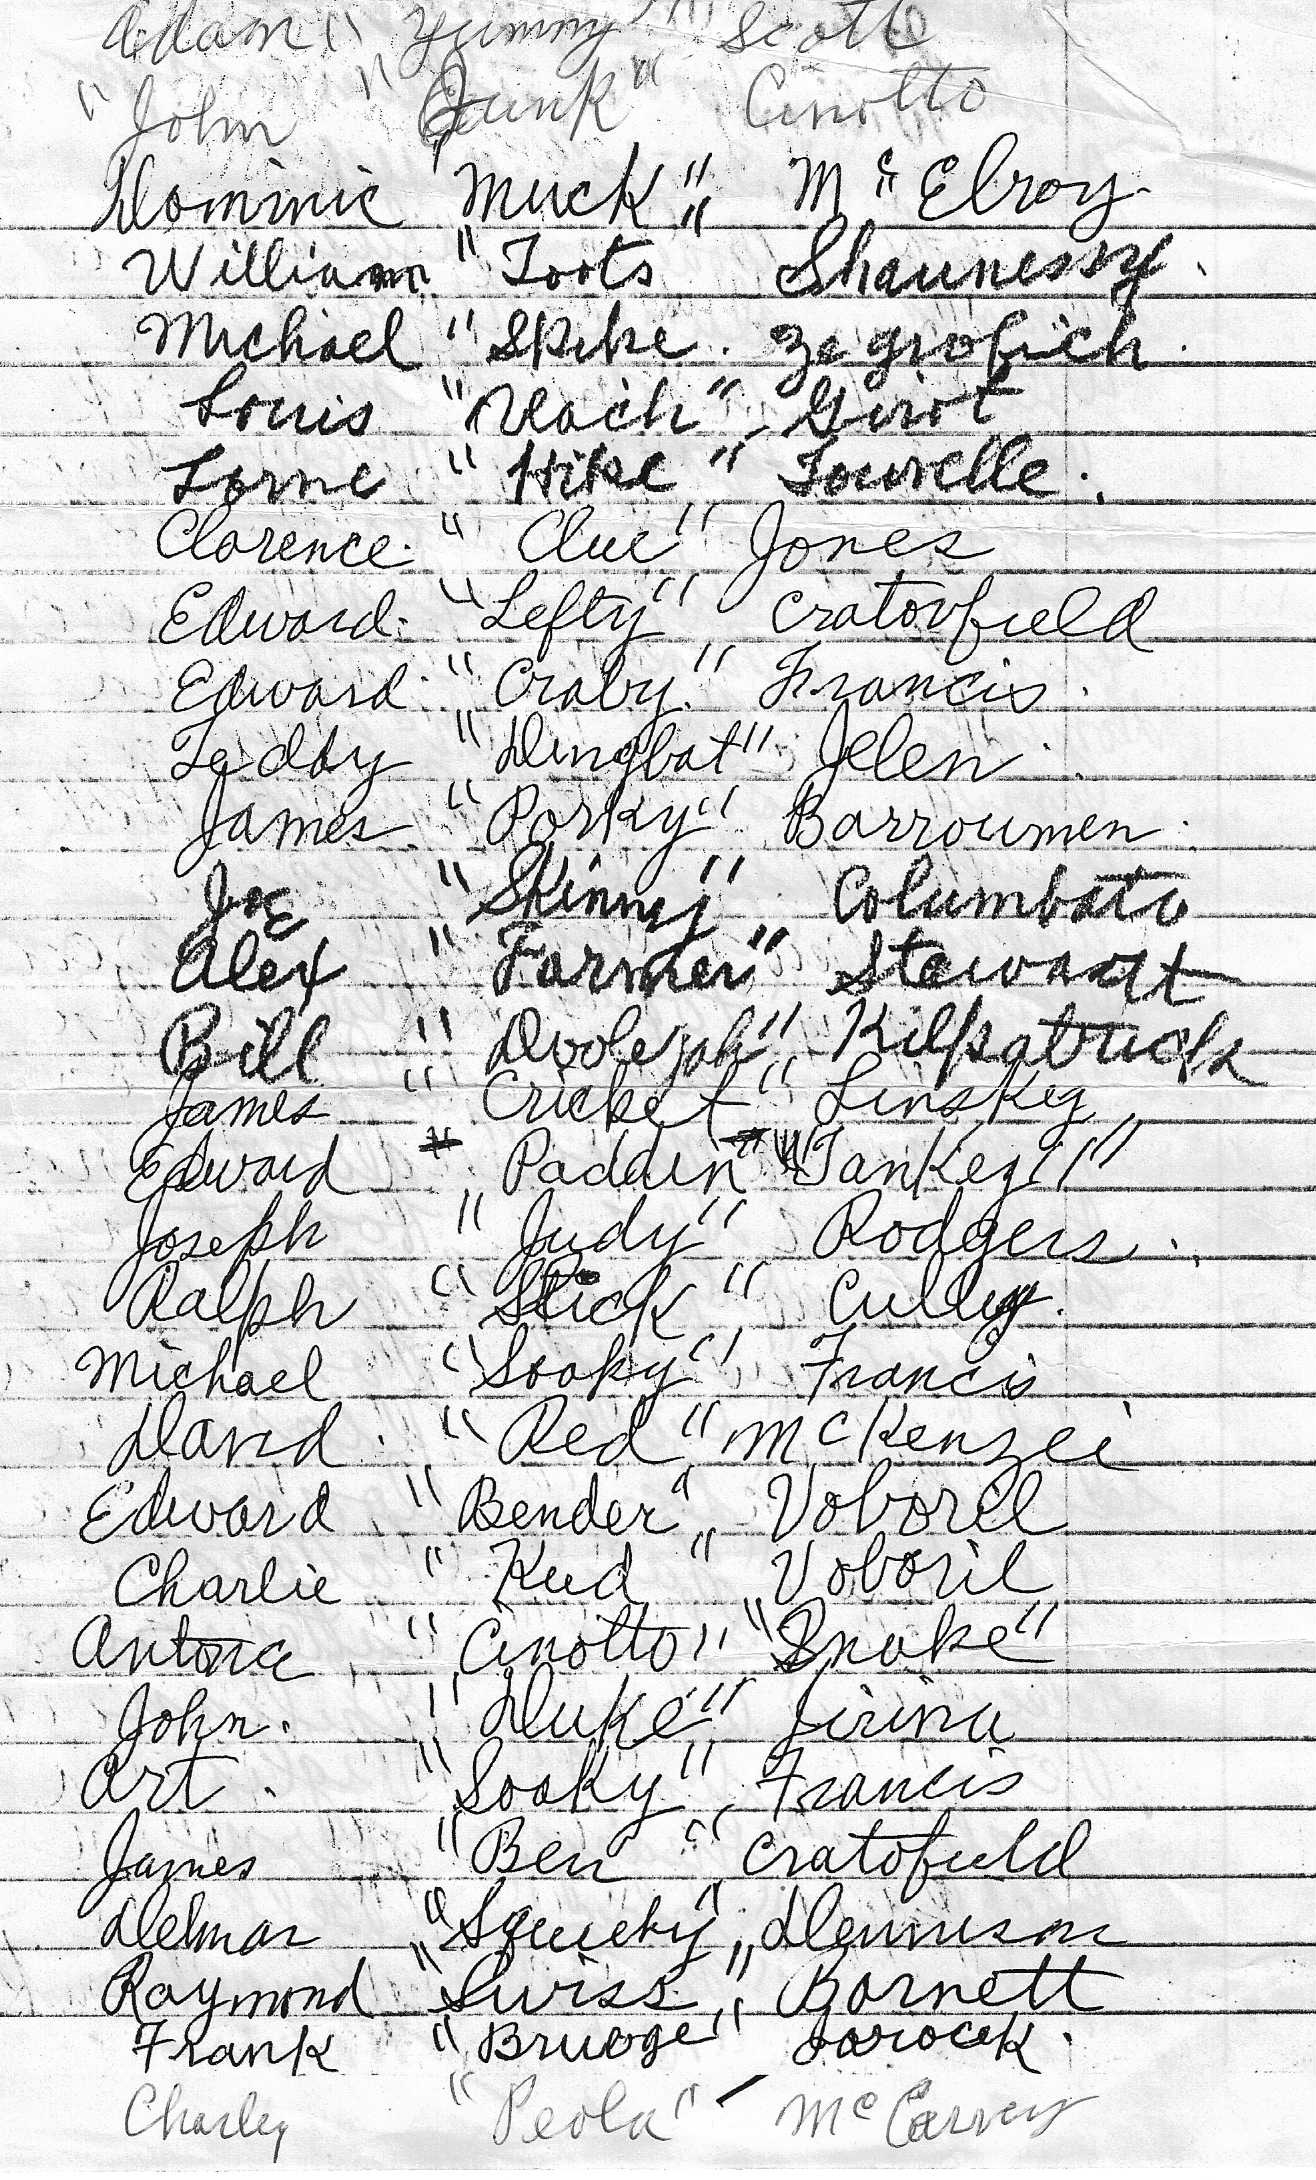 Adam "Yummy" Scott
"John "Junk" Cinotto
Dominic "Muck" McElroy.
William "Toots" Shaunessy
Michael "Spike. Zegrofich.
Louis "Vach" Girot
Lorne "Hike" Tourelle.
Clarence. "Clue" Jones
Edward. "Lefty" Cratovfield
Edward. "Craby." Francis.
Teddy "Dingbat" Jelen.
James "Porky" Barroumen.
Joe "Skinny" Columbato
Alex "Farmer" Stewart
Bill " Kilpatrick
James "Cricket" Linskey
Edward "Paddin" "Tankey"
Joseph "Judy" Rodgers.
Ralph "Slick" Cully.
Michael "Sooky" Francis
David. "Red" McKenzei
Edward "Bender" Voboril
Charlie "Kud" Voboril
"Cinotto" "Snake"
John. "Duke" Jirina
Art. "Sooky" Francis
James "Ben" Cratofield
Delmar "Squeeky" Dennison
Raymond "Swiss" Barnett
Frank "
Charley "Peola" McCarvey